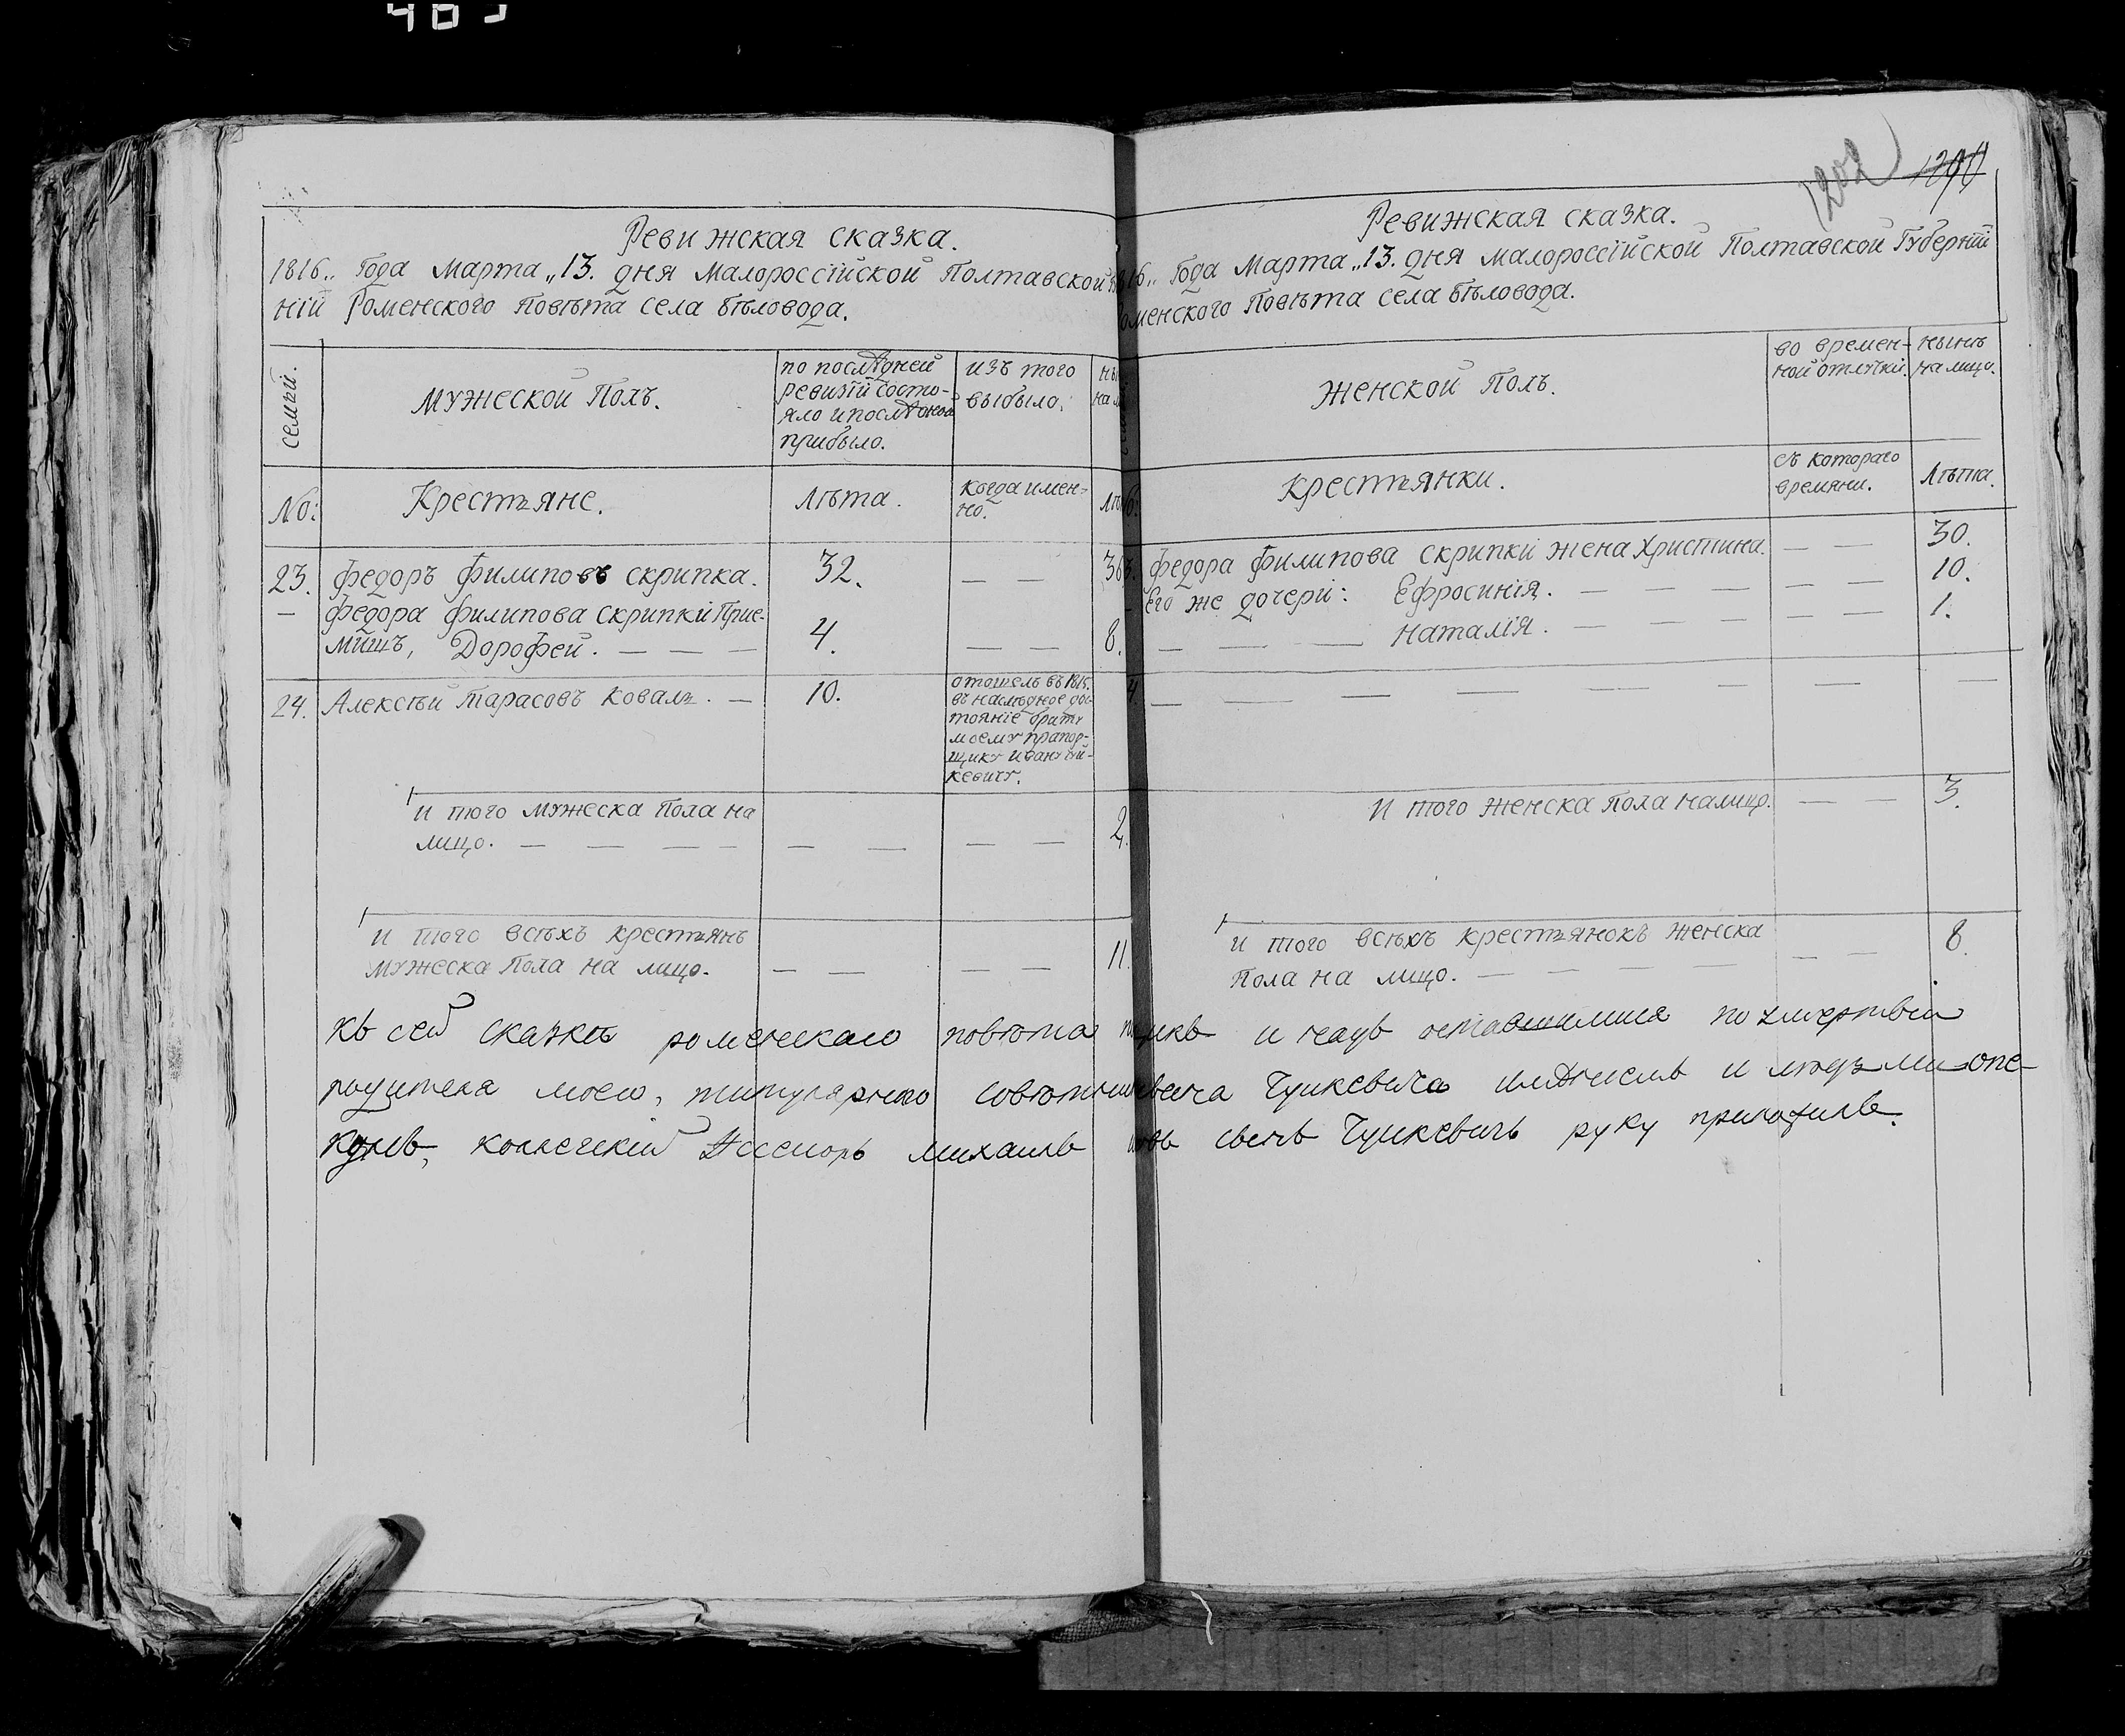 Ревижская сказка.
1816„ Года Марта „13. дня Малороссїйской Полтавской
нїй Роменского Повѣта села Бѣловода.
семьи.
мужеской Полъ.
по последней
ревизїй состо-
яло и после оной
прибыло.
изъ того
выбыло.
No:
Крестьяне.
Лѣта.
когда имен-
но.
23. Федоръ Филиповъ скрипка. 32. — — 36
— Федора Филипова скрипкй Прие-
мышъ, Дорофей. — — — 4. — — 8.
24. Алексѣй Тарасовъ Коваль. — 10.
отошелъ въ 1815.
въ наследное дос-
тоянїе брату
моему прапор-
щику Ивану
кевичу.
И того мужеска Пола на
лицо. — — — — — — — — 2.
И того всѣхъ крестьянъ
мужеска Пола на лицо. — — — — 11.
1202 1290
Ревижская сказка.
16„ Года Марта „13. дня Малороссїйской Полтавской Губернїй
оменского Повѣта села Бѣловода.
Женской Полъ.
во времен-
ной отлучкѣ.
нынѣ
на лицо.
Крестьянки.
съ котораго
времяни.
Лѣта.
3. Федора Филипова скрипкй жена Христина. — — 30.
Его же дочерй: Ефросинїя. — — — — — 10.
— — — Наталїя. — — — — — 1.
4. — — — — — — — —
И того женска Пола налицо. — — 3.
И того всѣхъ крестьянокъ женска
Пола на лицо. — — — — — — 8.
Къ сей сказкѣ роменскаго повѣта и надъ оставшимися по смертѣй
родителя моего, титулярного совѣтни имѣнiемъ и людьми опе-
кунъ, коллегскiй Ассесоръ михаилъ руку приложилъ.